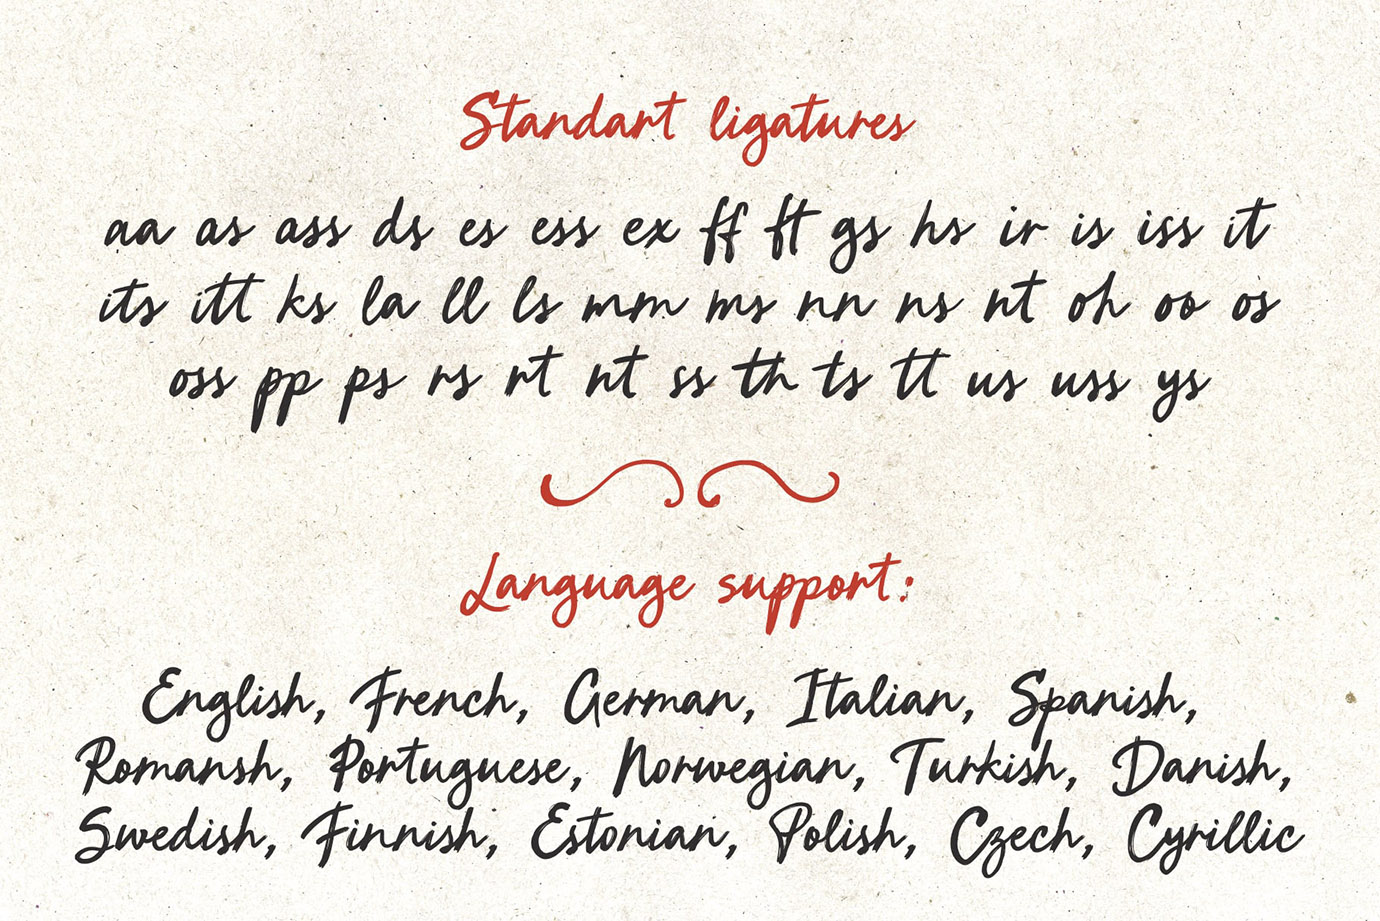 Standart ligatures
aa as ass ds es ess ex ff ft gs hs ir is iss it
its itt ks la ll ls mm ms nn ns nt oh oo os
oss pp ps rs rt nt ss th ts tt us uss ys
Language support:
English, French, German, Italian, Spanish,
Romansh, Portuguese, Norwegian, Turkish, Danish,
Swedish, Finnish, Estonian, Polish, Czech, Cyrillic